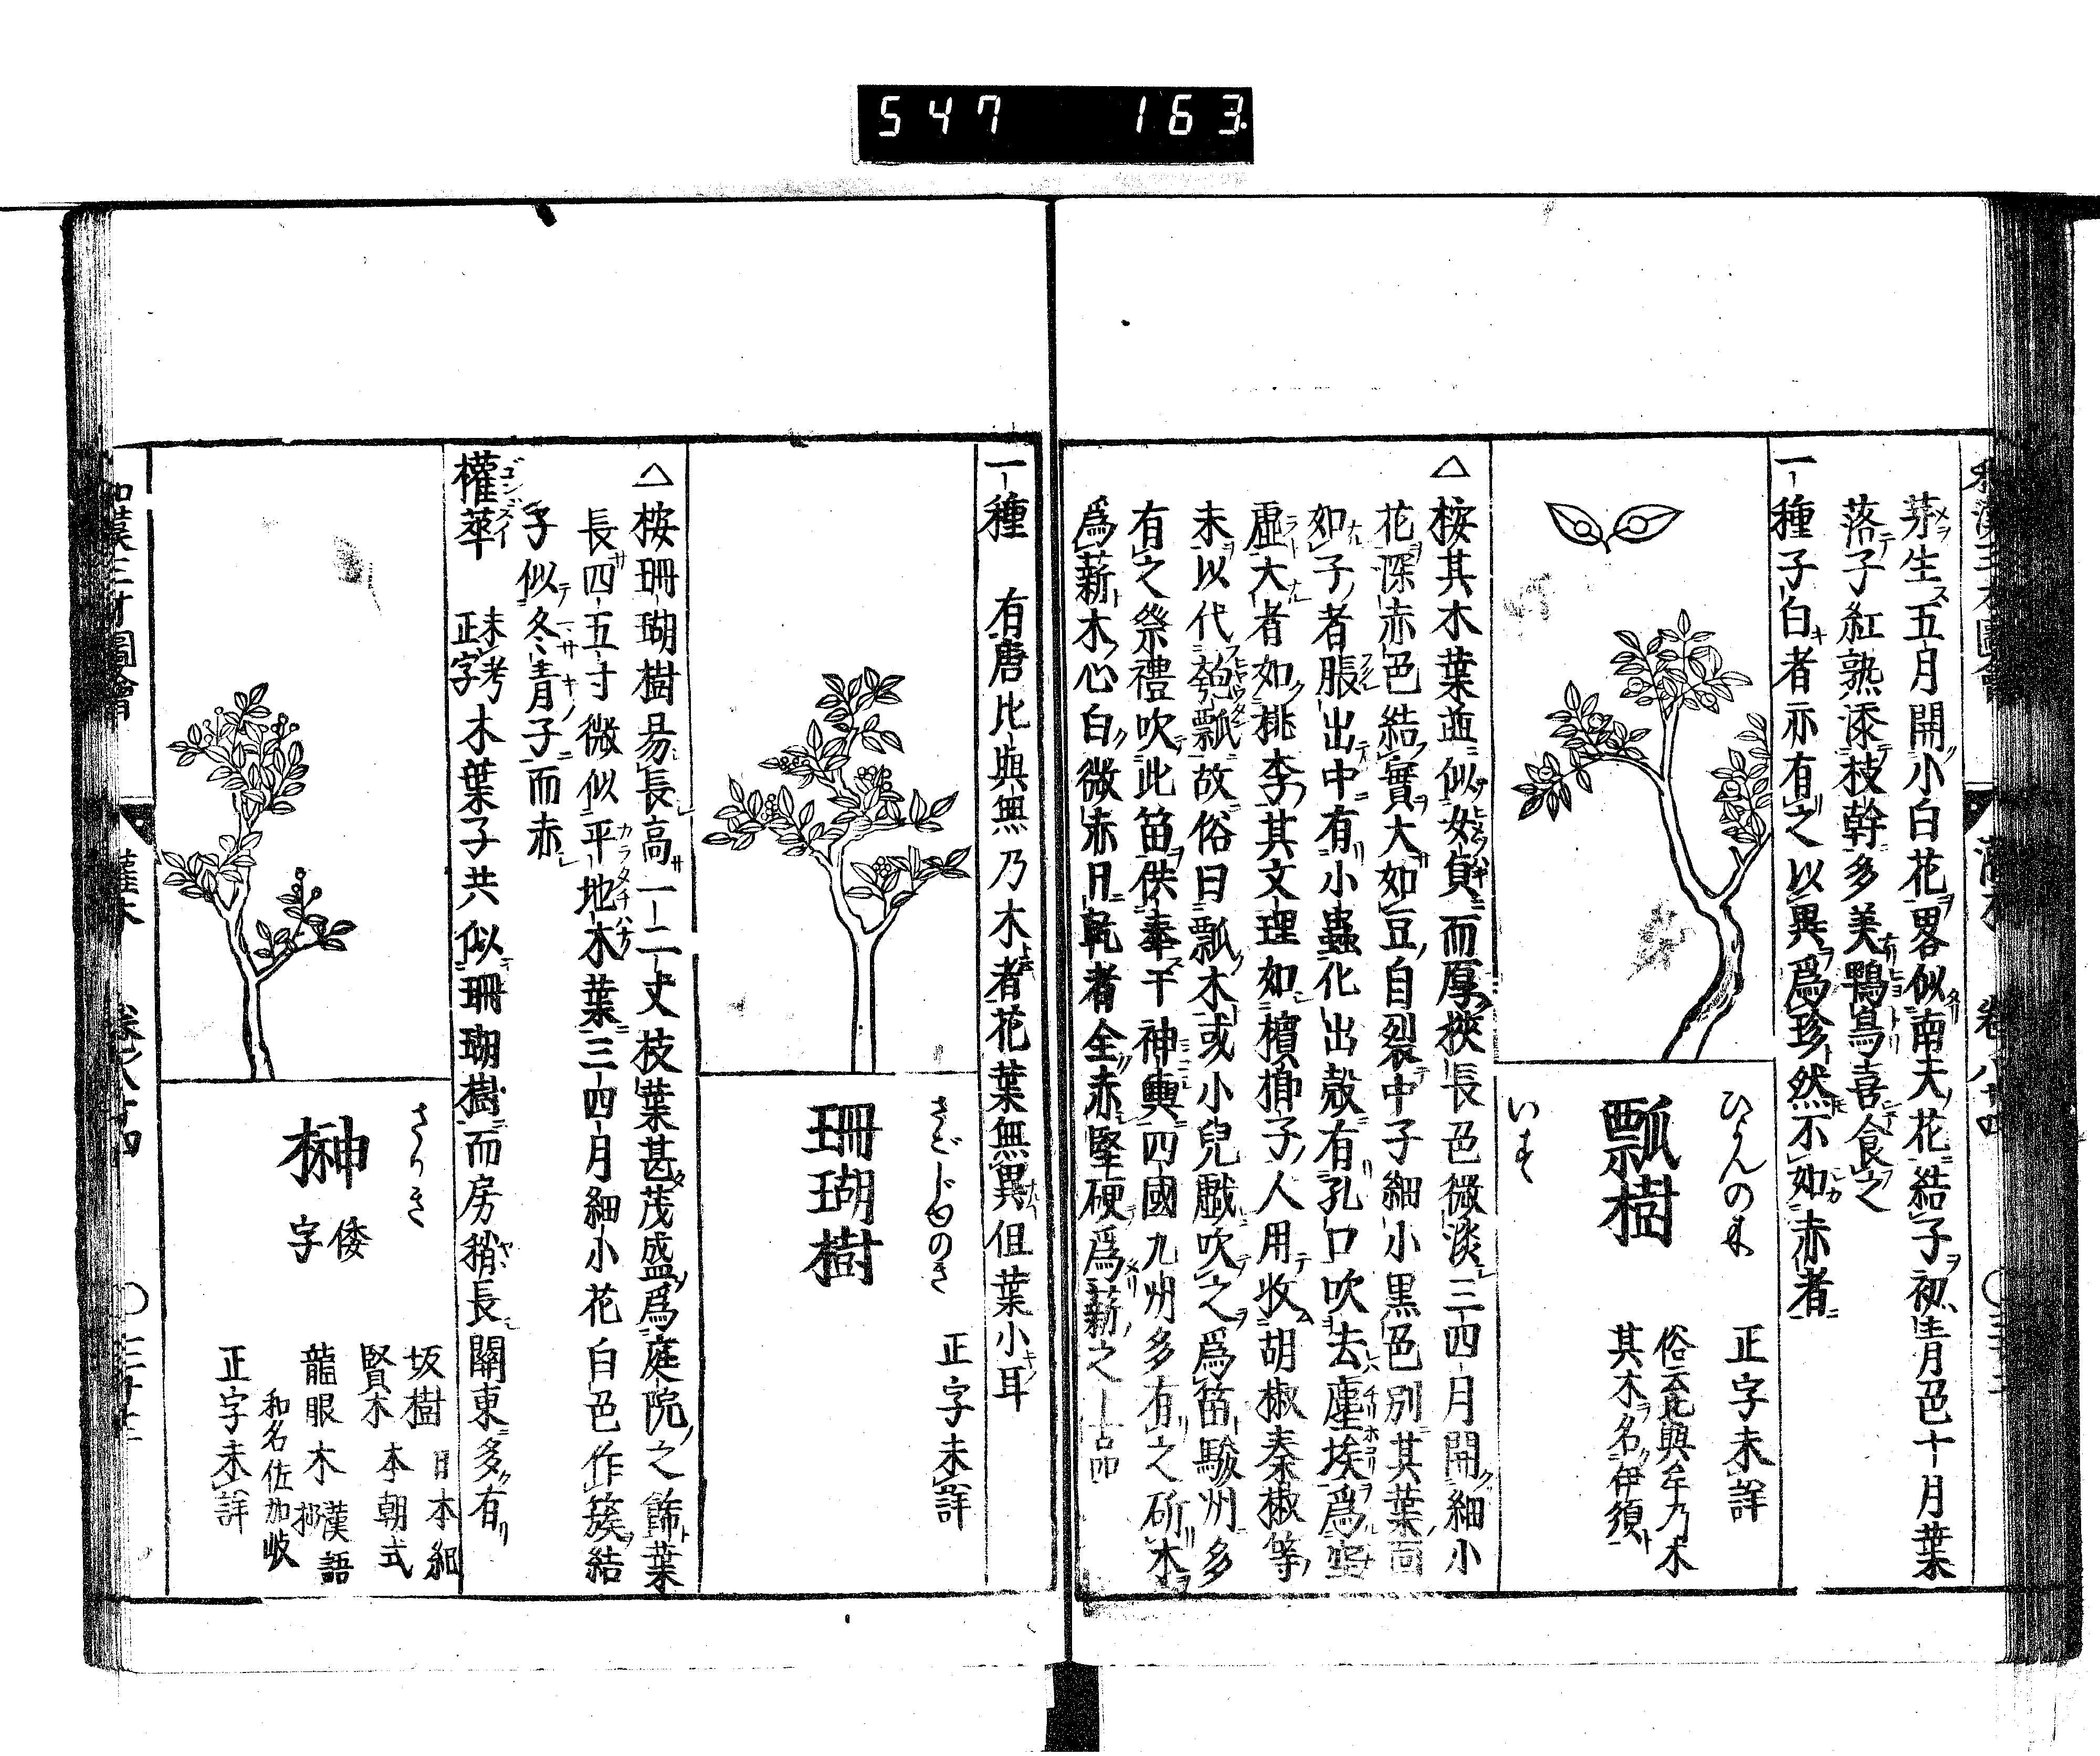 547 163
芽生五月開小白花畧似南天花結子初青色十月葉
落子紅熟添枝幹多美鴨鳥喜食之
一種子白者亦有之以異爲珍然不如赤者
ひよんの木
いす
瓢樹
正字未詳
俗云比與牟乃木
其木名伊須
△按其木葉並似女貞而厚挾長色微淡三四月開細小
花深赤色結實大如豆自裂中子細小黒色別其葉面
如子者脹出中有小蟲化出殼有孔口吹去塵埃爲空
虛大者如桃李其文理如檳榔子人用收胡椒秦椒等
未以代匏瓢故俗曰瓢木或小兒戲吹之爲笛駿州多
有之祭禮吹此笛供奉干神輿四國九州多有之斫木
爲薪木心白微赤日乾者全赤堅硬爲薪之上品
一種 有唐比與無乃木者花葉無異但葉小耳
さごじゆのき
珊瑚樹
正字未詳
△按珊瑚樹昜長高一二丈枝葉甚茂盛爲庭院之餙葉
長四五寸微似平地木葉三四月細小花白色作簇結
子似冬青子而赤
權萃 未考正字 木葉子共似珊瑚樹而房稍長關東多有
さかき
榊
倭字
坂樹 日本紀
賢木 本朝式
龍眼木 漢語抄
和名佐加岐
正字未詳
和漢三才圖會 灌木 卷八十四